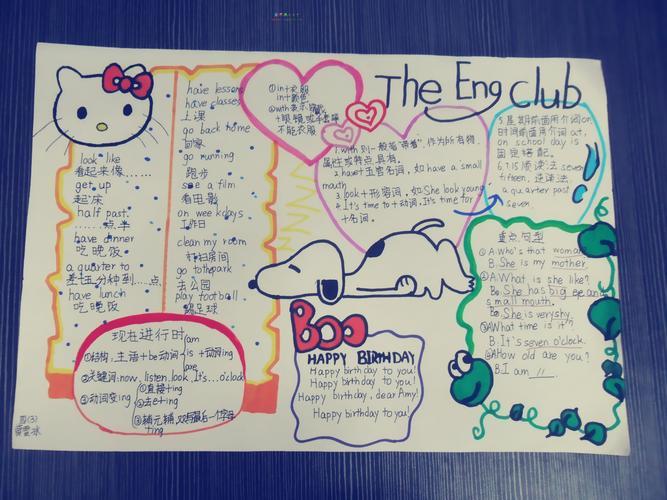 The Eng Club
look like
看起来像……
get up
起床
half past.
………点半
have dinner
吃晚饭
a quarter to
差十五分种到……点
have lunch
吃晚饭
have lessons
have classes
上课
go back home
回家
go running
跑步
see a film
看电影
on weekdays
工作日
clean my room
打扫房间
go to the park
去公园
play football
踢足球
①in+衣服
in+颜色
不能衣服
1.with 则一般指"带着",作为所有物,
属性或特点,具有。
2.have+五官名词,如 have a small
mouth
3.look+形容词,如She look young
4.It's time to+动词,It's time for
+名词。
5.星期前面用介词on,
时间前面用介词at,
on school day is
固定搭配。
a quarter past
seven.
重点句型
①A:who's that woman
B.She is my mother.
②A.What is she like?
small mouth.
B.She is very shy.
③A.What time is it?
B.It's seven o'clock.
④A.How old are you?
B.I am 11.
现在进行时
①结构,主语+be动词 am is are +动词ing
②关键词:now, listen, look, It's…o'clock
③动词变ing
①直接+ing
②去e+ing
+ing
Boo
HAPPY BIRTHDAY
Happy birthday to you!
Happy birthday to you!
Happy birthday, dear Amy!
Happy birthday to you!